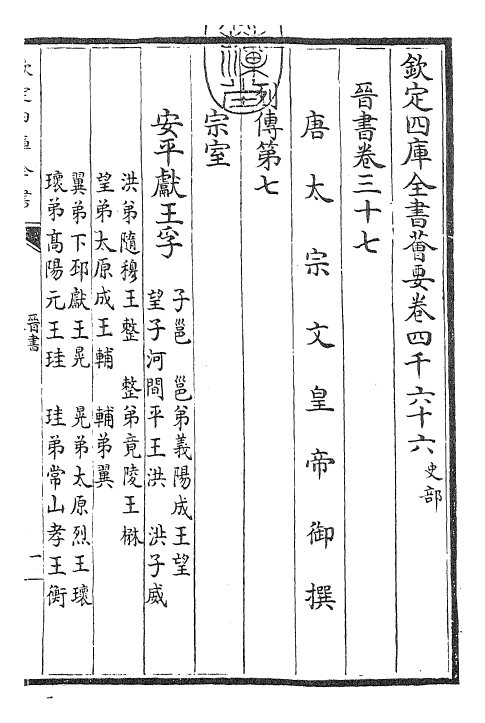 欽定四庫全書薈要卷四千六十六史部
晉書卷三十七
唐太宗文皇帝御撰
列傳第七
宗室
安平獻王孚
子邕 邕弟義陽成王望
望子河間平王洪 洪子威
洪弟隨穆王整 整弟竟陵王楙
望弟太原成王輔 輔弟翼
翼弟下邳獻王晃 晃弟太原烈王瓌
瓌弟髙陽元王珪 珪弟常山孝王衡
欽定四庫全書
晉書
一